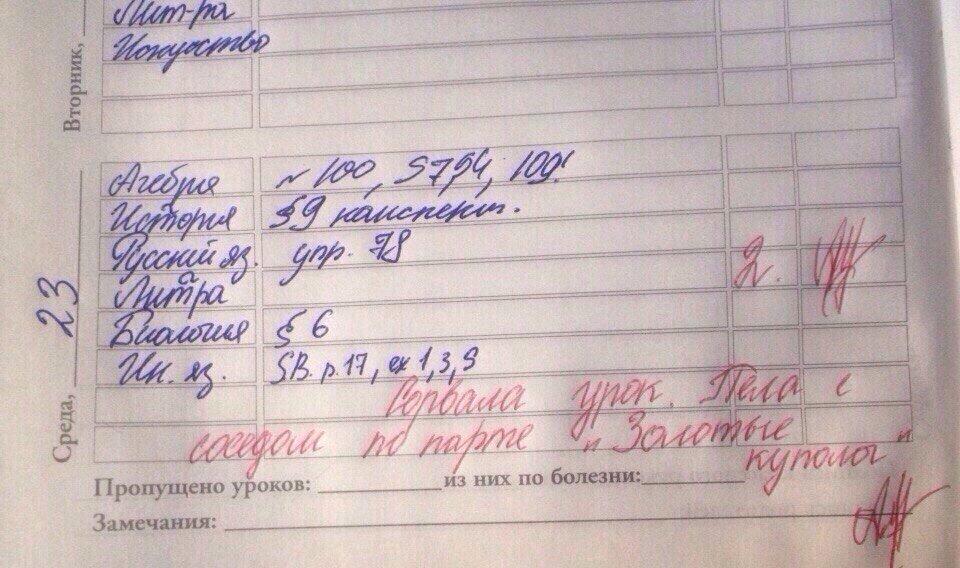 Вторник,
Лит-ра
Искусство
Среда, 23
Агебрия ~ 100, 5754, 109!
История §9 канспект.
Русский яз. упр. 78 2.
Литра
Биология § 6
Ин. яз. SB. p. 17, ex 1, 3, 9
Сорвала урок. Пела с
соседом по парте "Золотые
купола"
Пропущено уроков: из них по болезни:
Замечания: